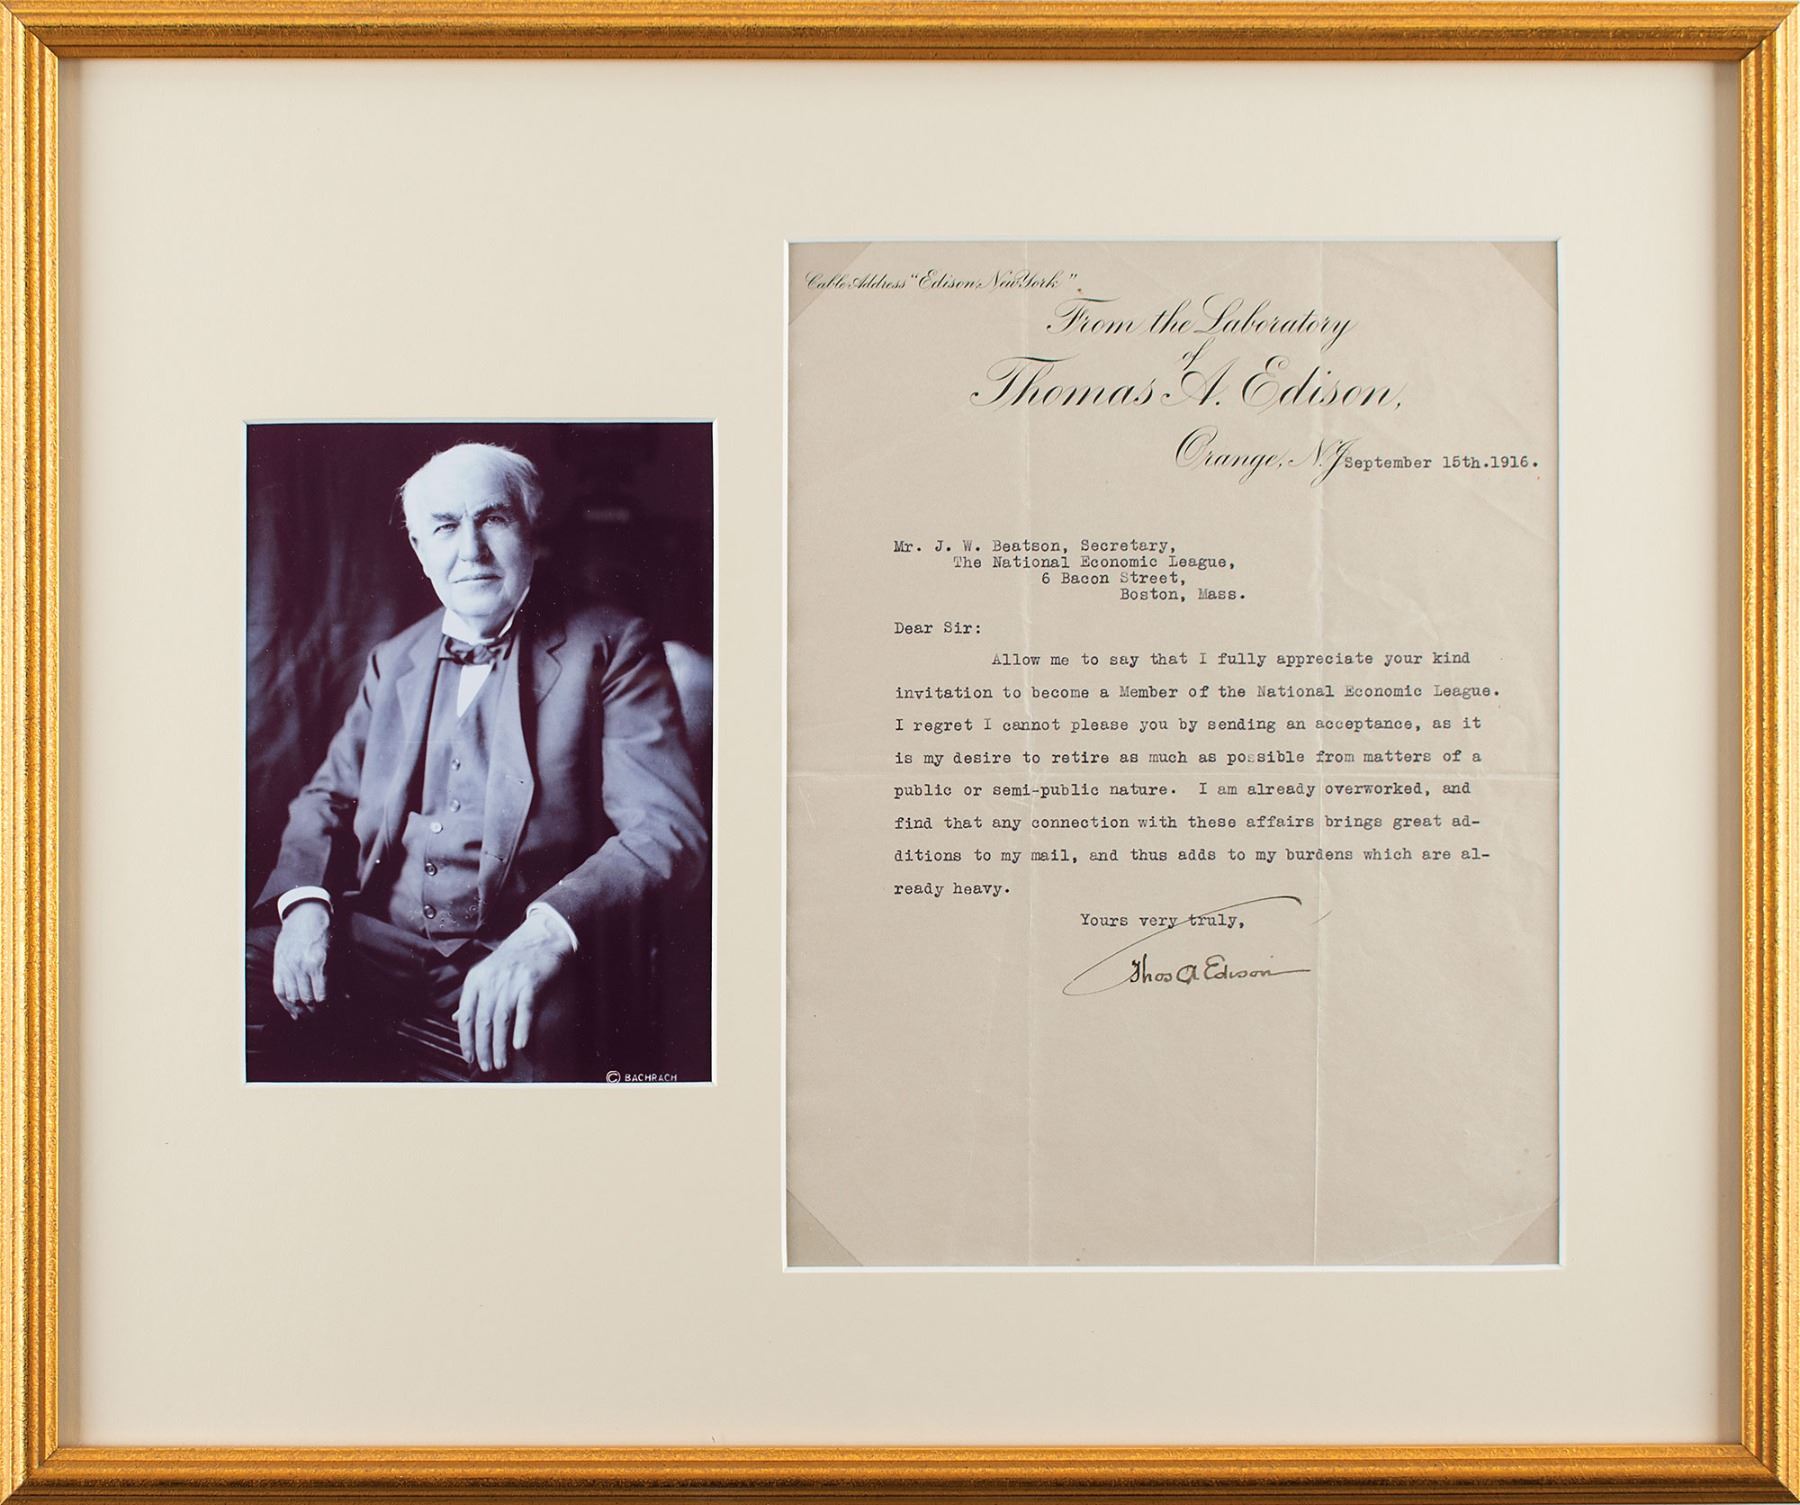 Cable Address "Edison, New York"
From the Laboratory
of
Thomas A. Edison,
Orange, N.J. September 15th.1916.
Mr. J. W. Beatson, Secretary,
The National Economic League,
6 Bacon Street,
Boston, Mass.
Dear Sir:
Allow me to say that I fully appreciate your kind
invitation to become a Member of the National Economic League.
I regret I cannot please you by sending an acceptance, as it
is my desire to retire as much as possible from matters of a
public or semi-public nature. I am already overworked, and
find that any connection with these affairs brings great ad-
ditions to my mail, and thus adds to my burdens which are al-
ready heavy.
Yours very truly,
Thos A Edison
© BACHRACH